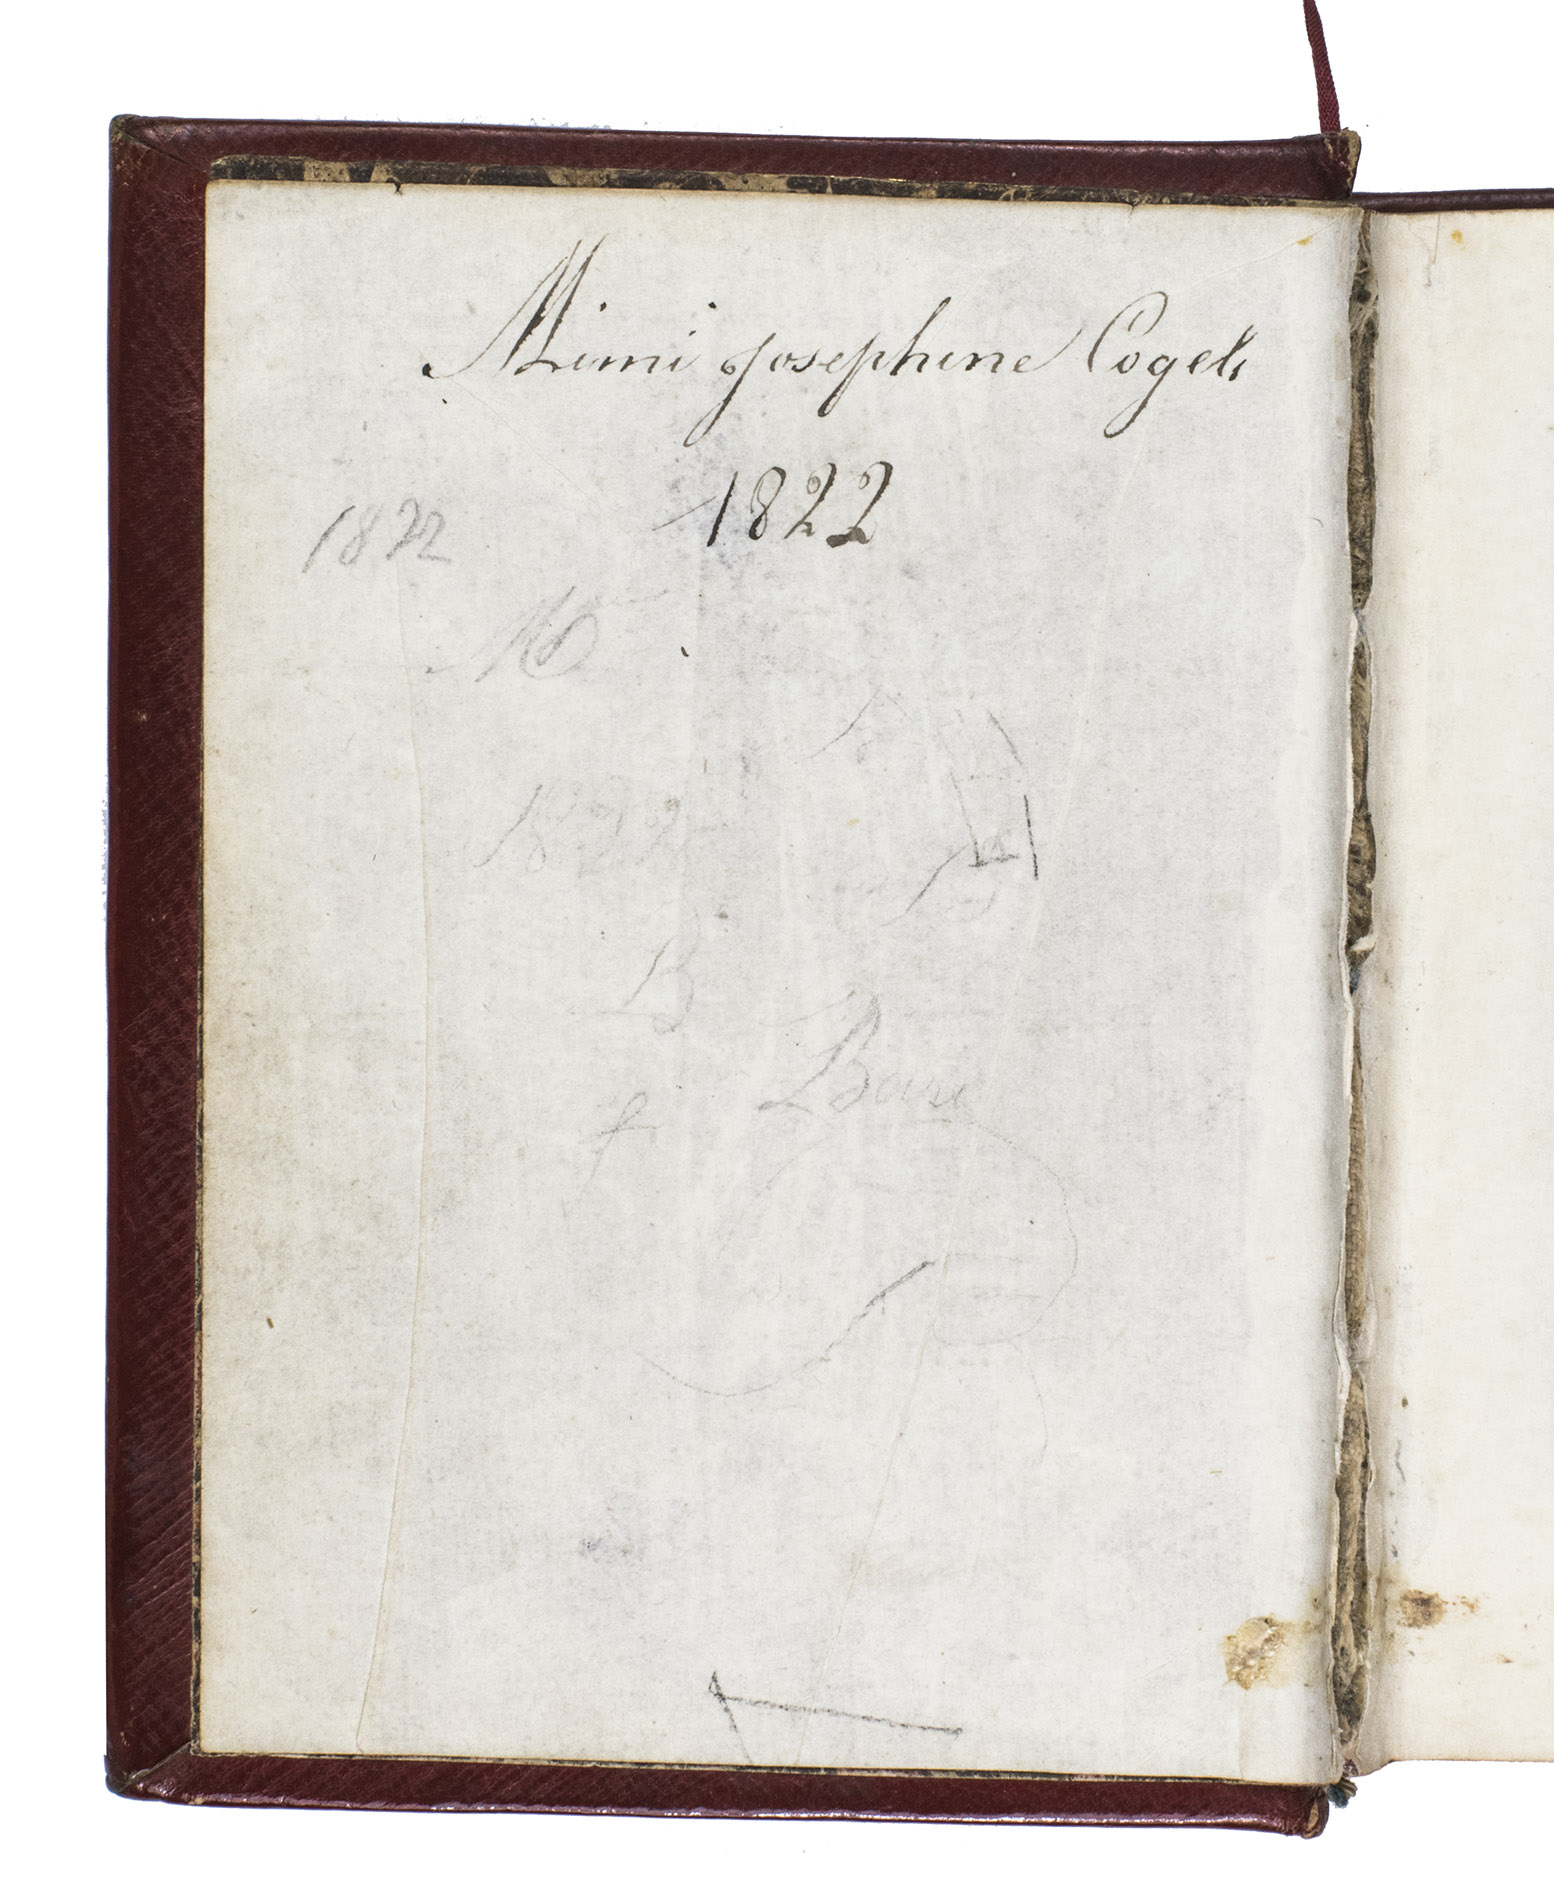 Mimi Josephine Cogels
1822
1822
M
1822
B